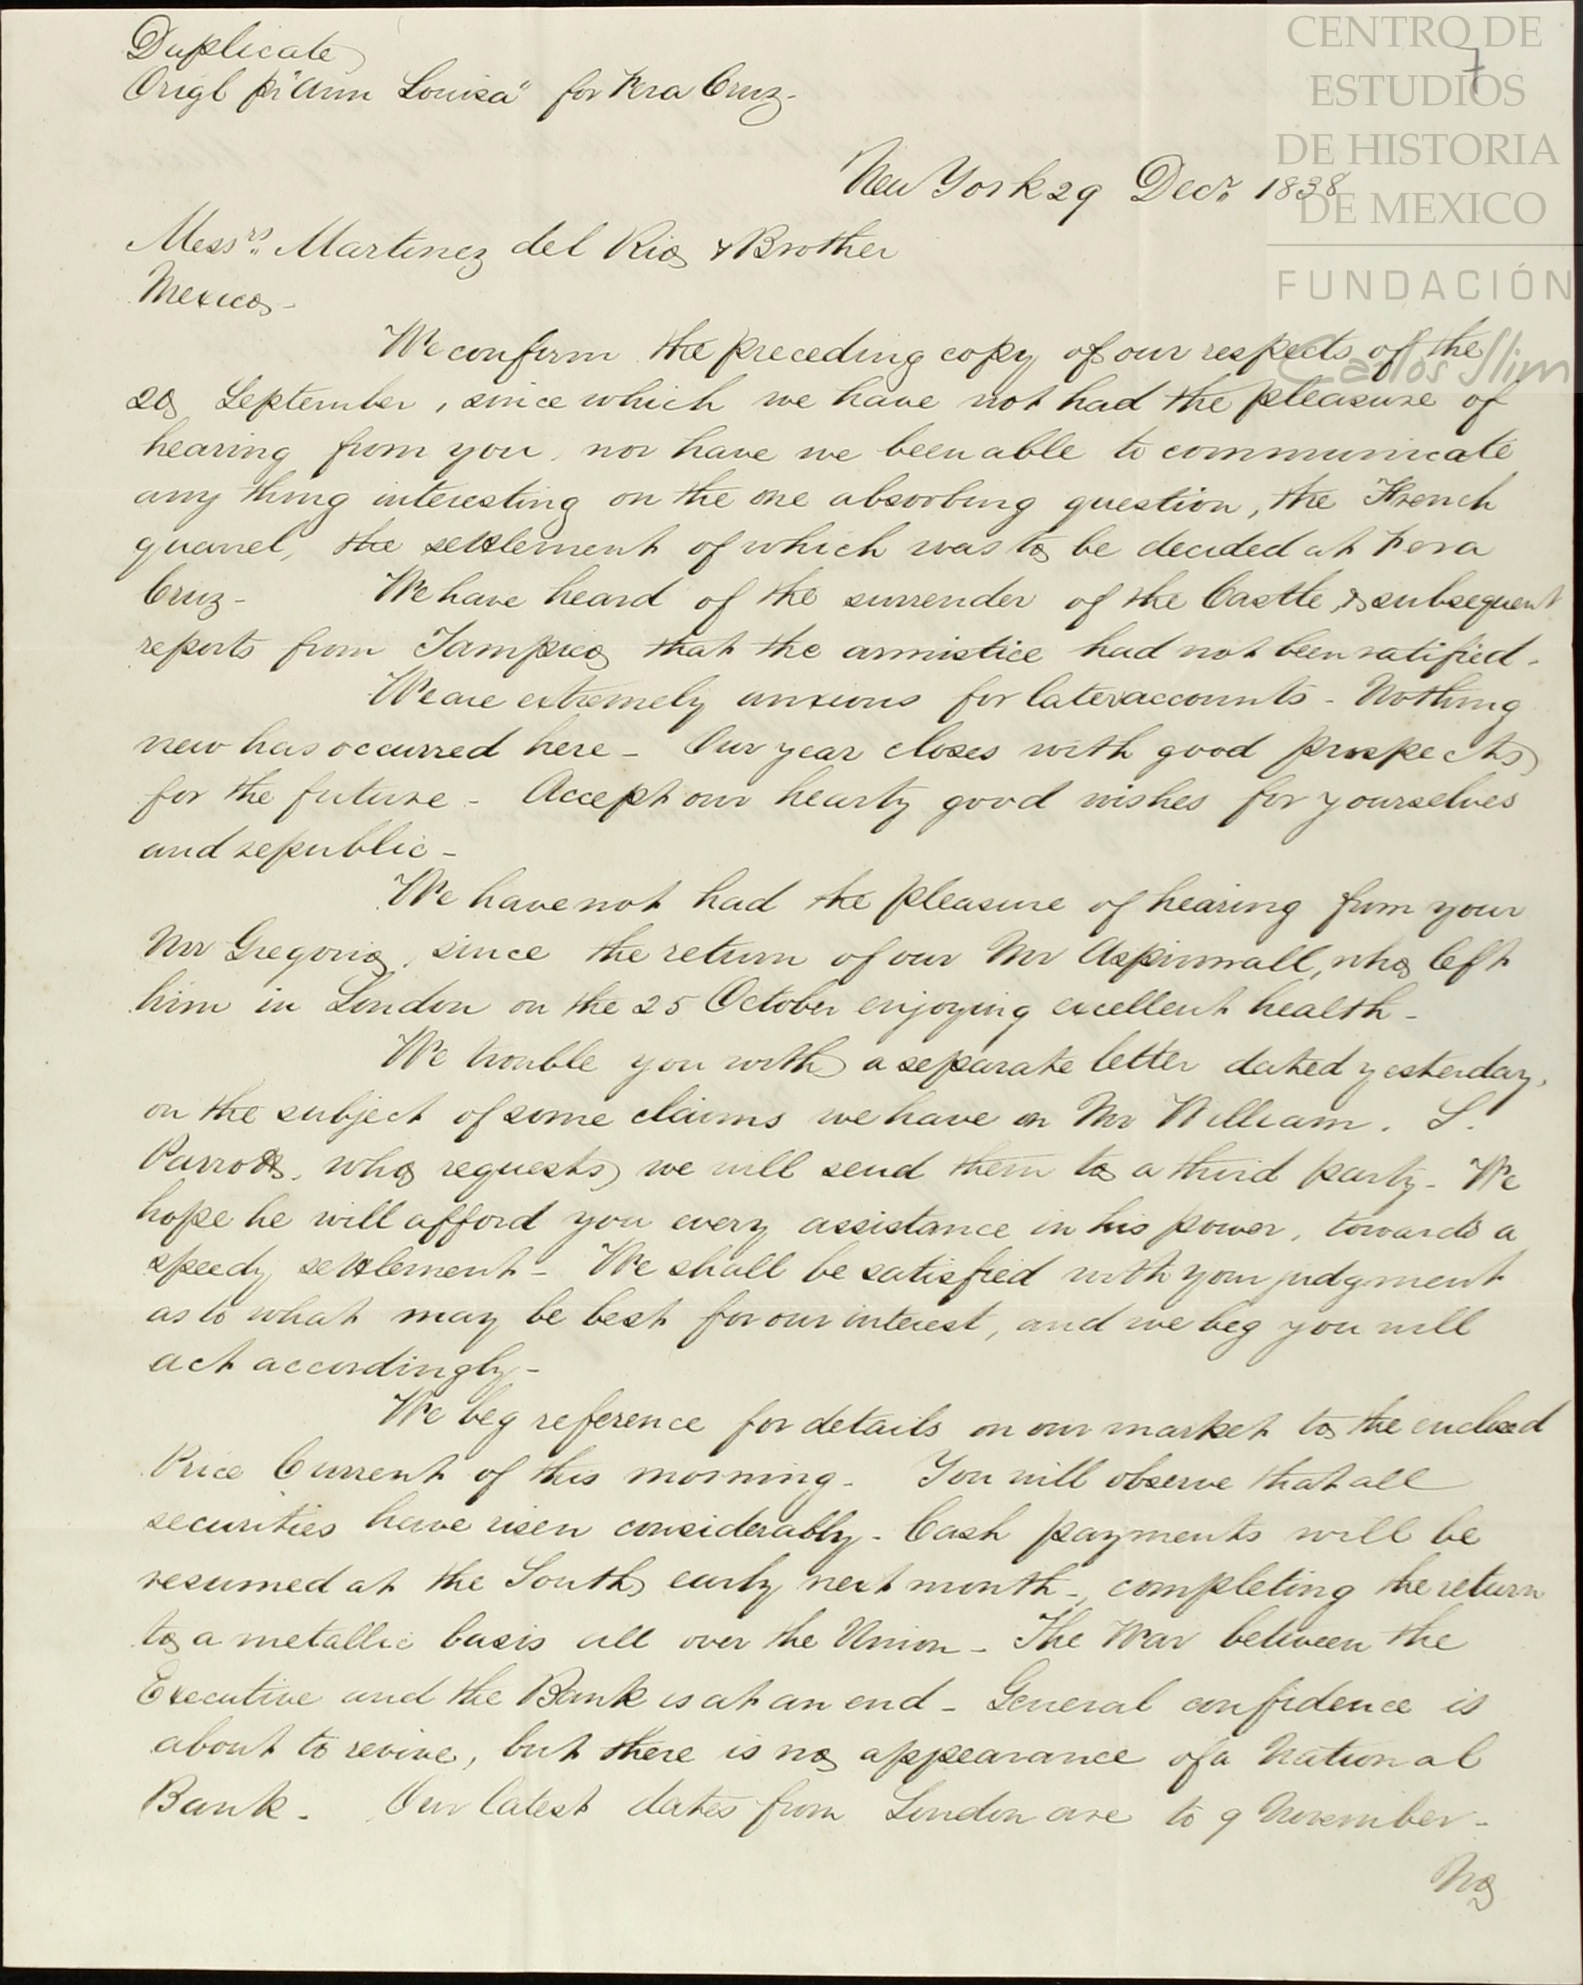 Duplicate
Origl pr "Ann Louisa" for Vera Cruz -
7
New York 29 Decr. 1838
Messrs. Martinez del Rio & Brother
Mexico -
We confirm the preceding copy of our respects of the
20 September, since which we have not had the pleasure of
hearing from you, nor have we been able to communicate
any thing interesting on the one absorbing question, the French
quarrel, the settlement of which was to be decided at Vera
Cruz - We have heard of the surrender of the Castle, & subsequent
reports from Tampico that the armistice had not been ratified.
We are extremely anxious for later accounts - Nothing
new has occurred here - Our year closes with good prospects
for the future - Accept our hearty good wishes for yourselves
and republic -
We have not had the pleasure of hearing from your
Mr Gregorio, since the return of our Mr Aspinwall, who left
him in London on the 25 October enjoying excellent health -
We trouble you with a separate letter dated yesterday,
on the subject of some claims we have on Mr William. S.
Parrott, who requests we will send them to a third party - We
hope he will afford you every assistance in his power, towards a
speedy settlement - We shall be satisfied with your judgment
as to what may be best for our interest, and we beg you will
act accordingly -
We beg reference for details on our market to the enclosed
Price Current of this morning - You will observe that all
securities have risen considerably - Cash payments will be
resumed at the South early next month -, completing the return
to a metallic basis all over the Union - The War between the
Executive and the Bank is at an end - General confidence is
about to revive, but there is no appearance of a National
Bank - Our latest dates from London are to 9 November -
No
CENTRO DE
ESTUDIOS
DE HISTORIA
DE MEXICO
FUNDACIÓN
Carlos Slim